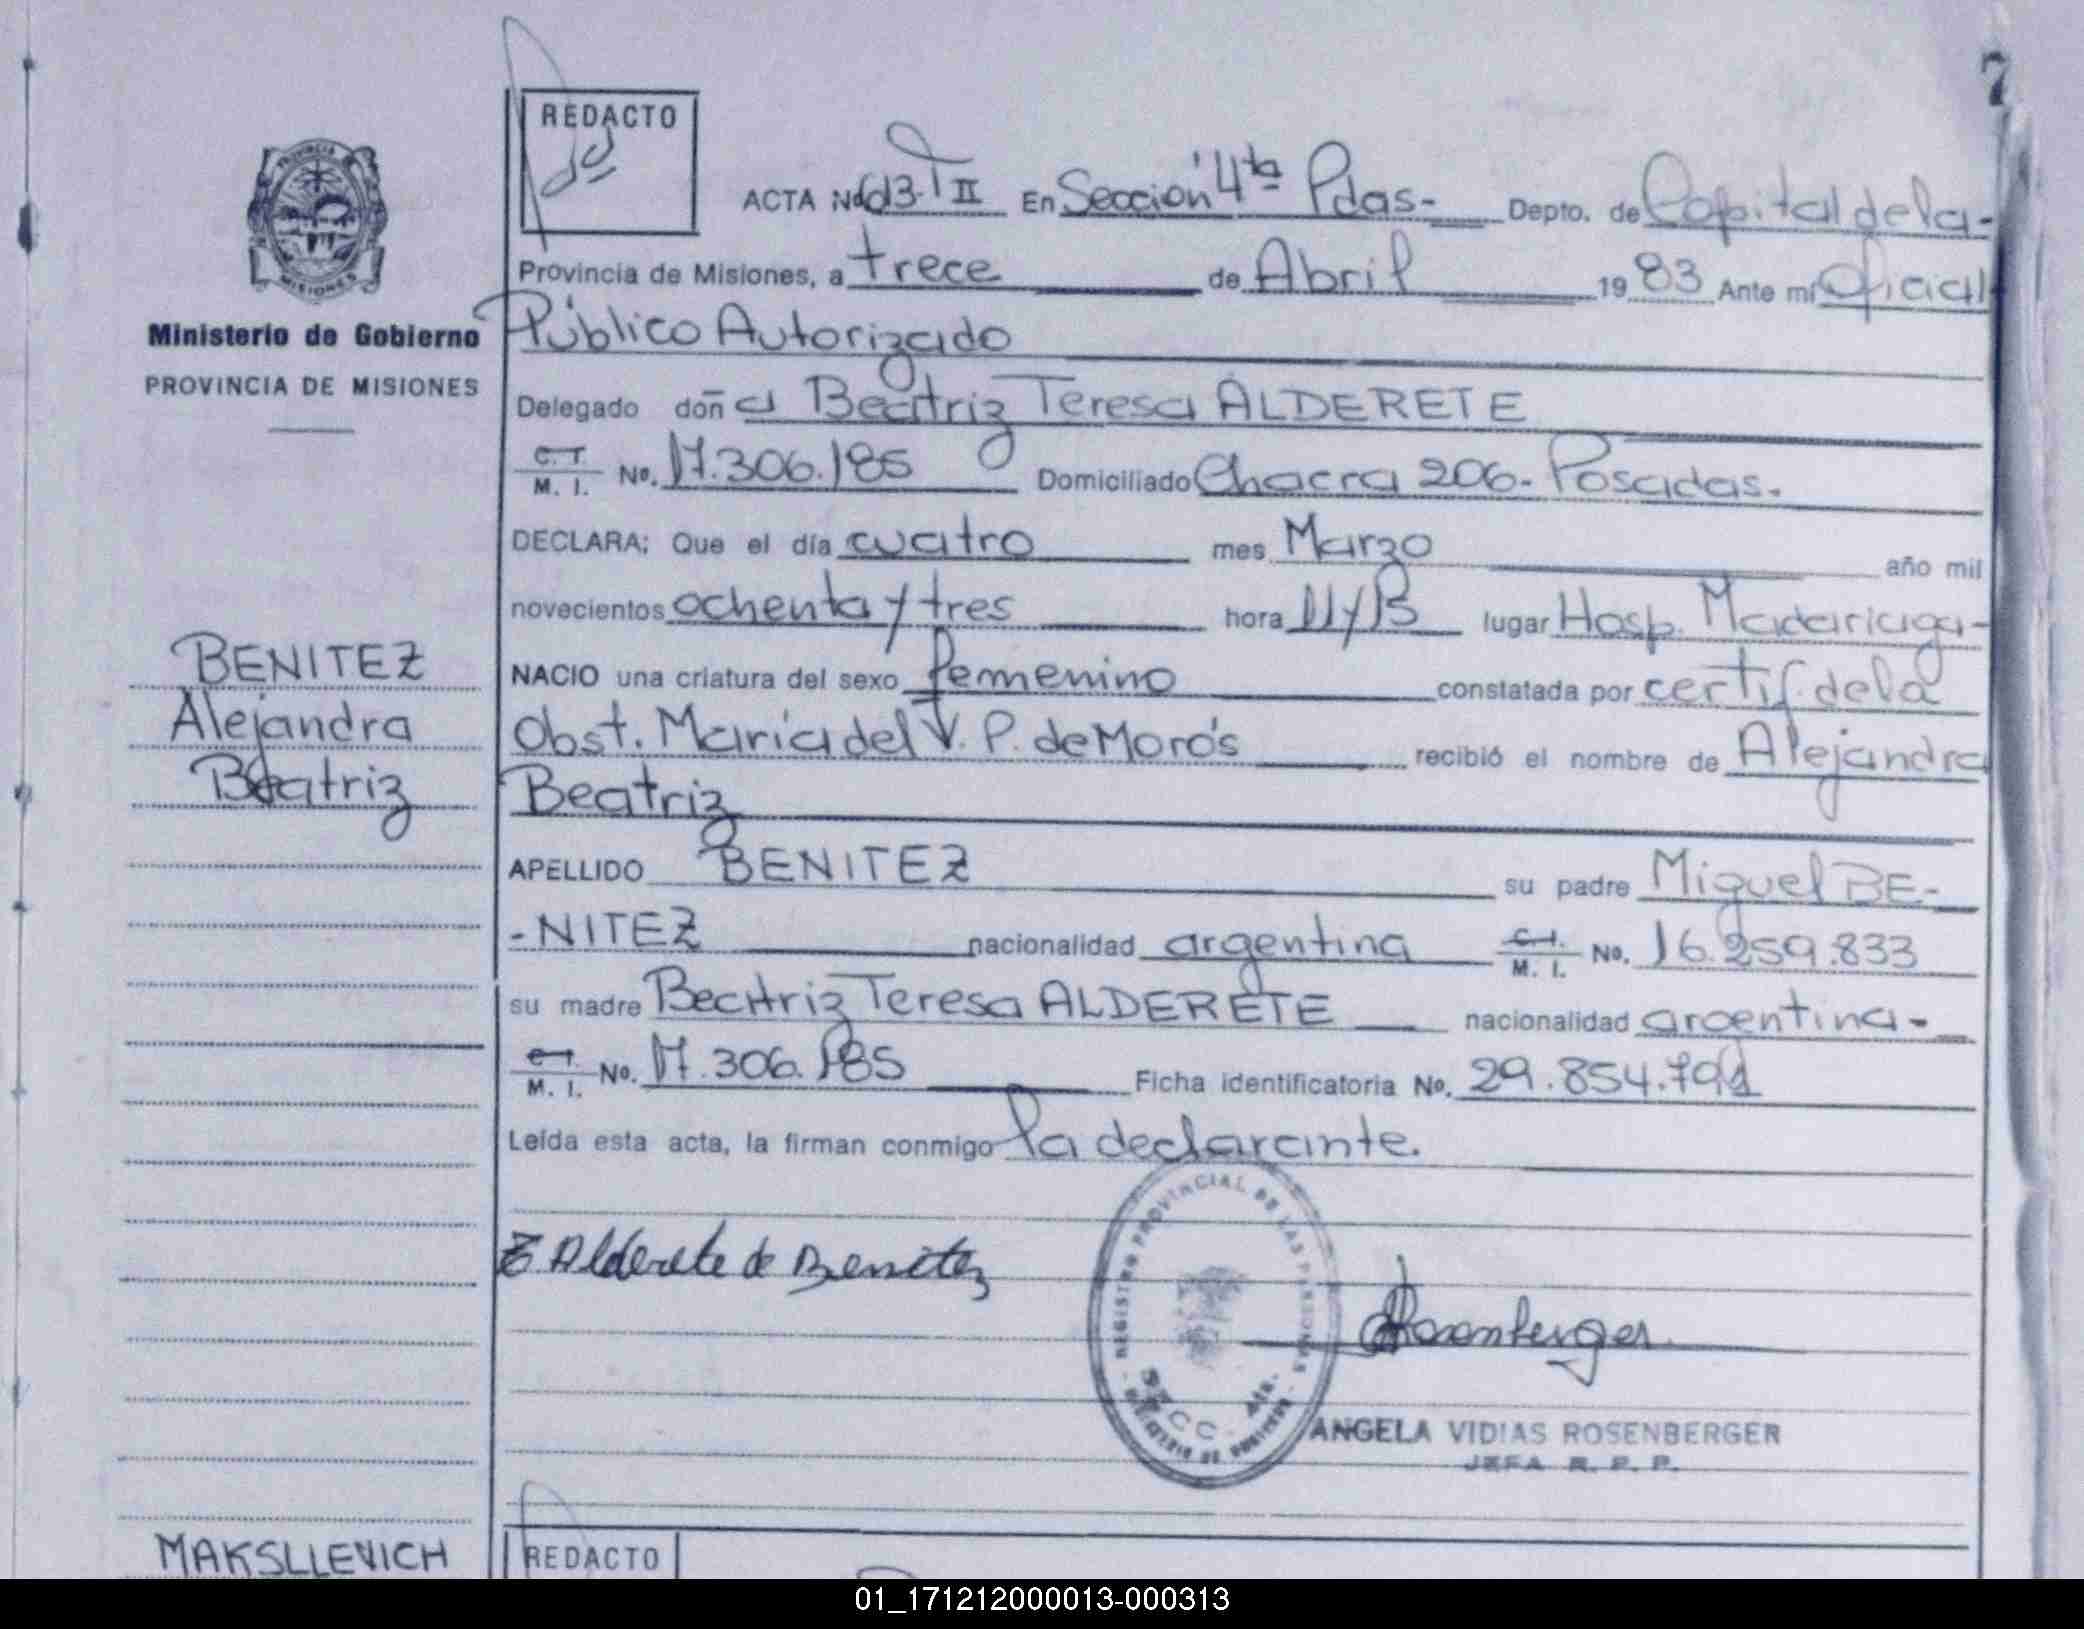 7
REDACTO
PROVINCIA DE
MISIONES
Ministerio de Gobierno
PROVINCIA DE MISIONES
ACTA No T II En Sección 4ta Pdas- Depto. de Capital de la-
Provincia de Misiones, a trece de Abril 1983 Ante mí Oficial
Público Autorizado
Delegado doña Beatriz Teresa ALDERETE
C. I. M. I. No. 17.306.185 Domiciliado Chacra 206- Posadas.
DECLARA: Que el día cuatro mes Marzo año mil
novecientos ochenta y tres hora lugar Hosp. Madariaga-
NACIO una criatura del sexo femenino constatada por certif. de la
Obst. María del V. P. de Morós recibió el nombre de Alejandra
Beatriz
BENITEZ
Alejandra
Beatriz
APELLIDO BENITEZ su padre Miguel BE-
-NITEZ nacionalidad argentina C. I. M. I. No. 16.259.833
su madre Beatriz Teresa ALDERETE nacionalidad argentina-
C. I. M. I. No. 17.306.185 Ficha identificatoria No. 29.854.791
Leída esta acta, la firman conmigo la declarante.
Alderete de Benitez
REGISTRO PROVINCIAL DE LAS PERSONAS
SECC. 4ta.
MINISTERIO DE GOBIERNO
Rosenberger
ANGELA VIDIAS ROSENBERGER
JEFA R. P. P.
MAKSLLEVICH
REDACTO
01_171212000013-000313